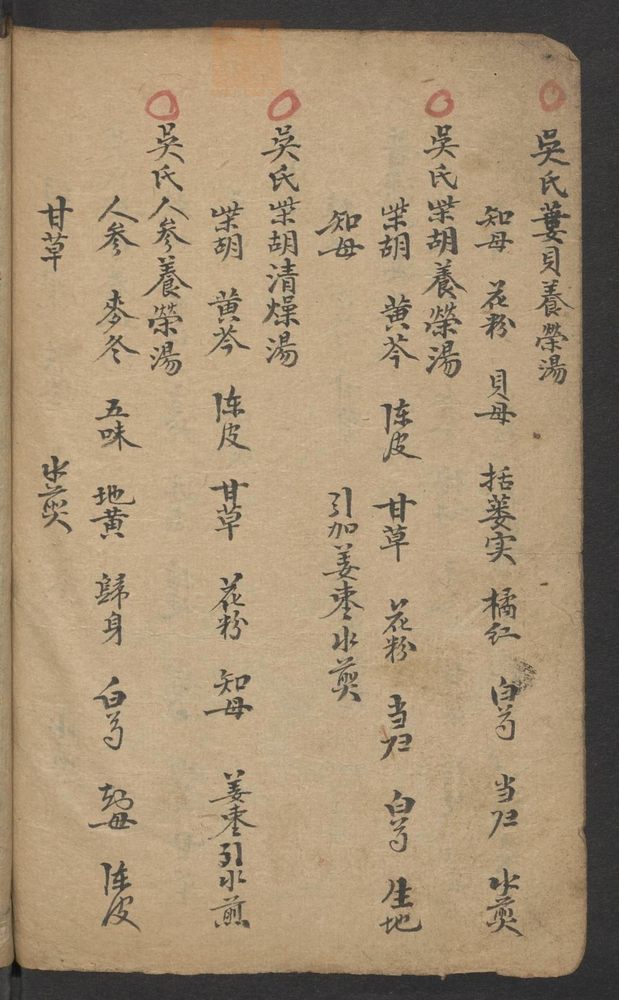 吳氏蔞貝養榮湯
知母 花粉 貝母 括蒌实 橘红 白芍 当归 水煎
吳氏柴胡養榮湯
柴胡 黄芩 陈皮 甘草 花粉 当归 白芍 生地
知母 引加姜枣水煎
吳氏柴胡清燥湯
柴胡 黄芩 陈皮 甘草 花粉 知母 姜枣引水煎
吳氏人参養榮湯
人参 麥冬 五味 地黄 歸身 白芍 知母 陈皮
甘草 水煎